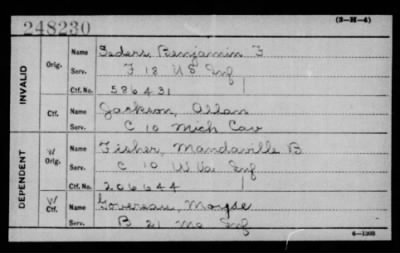 248230
(3-H-4)
INVALID
Orig.
Name
Benjamin F
Serv.
F 18 US Inf
Ctf. No.
586431
Ctf.
Name
Jackson, Allan
Serv.
C 10 Mich Cav
DEPENDENT
W/
Orig.
Name
Fisher, Mandaville B
Serv.
C 10 W Va Inf
Ctf. No.
206644
W/
Ctf.
Name
Govereau, Moyse
Serv.
B 21 Mo Inf